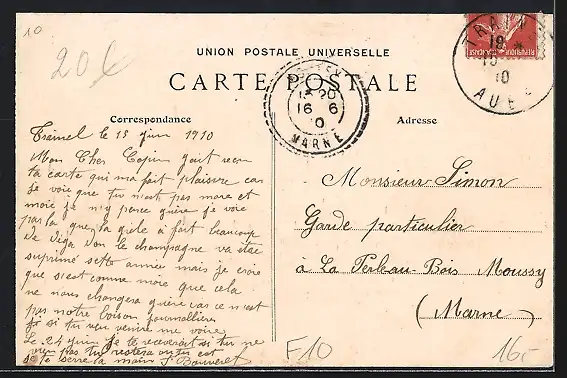 10
20€
UNION POSTALE UNIVERSELLE
CARTE POSTALE
TRAIN
18
10
AUBE
15 30
16 6
10
MARNE
Correspondance
Adresse
Trainel le 15 juin 1910
Mon Cher Copin jait reçu
ta carte qui ma fait plaisire car
je voie que tu n'est pas more et
moie je n'y pence quère je voie
par la que la grèle a fait beaucoup
De Diga Don le champagne va étre
suprimé sette année mais je croie
que s'est comme moie que cela
ne nous changera quère car ce n'est
pas notre boison journallière
je si tu veu venire me voire
Le 24 juin je te receverait si tu ne
vien pas tu restera ou tu est
je te serre la main
Monsieur Simon
Garde particulier
à La Perleau-Bois Moussy
(Marne)
F10
16.-